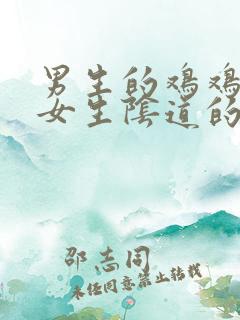 男生的鸡鸡
女生陰道的
邵志同
未经同意禁止转载